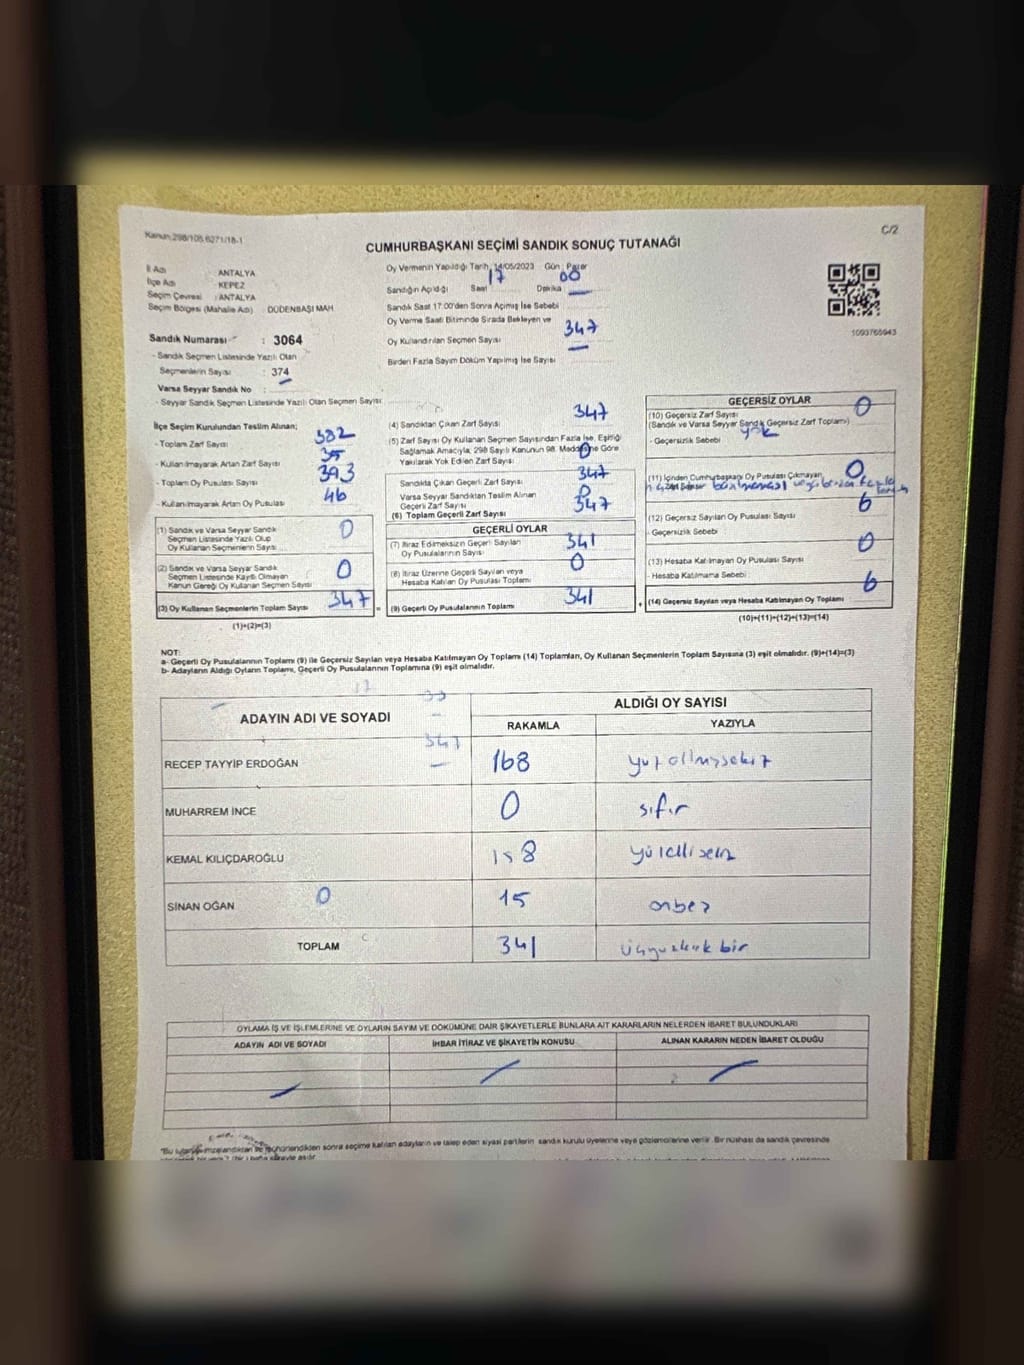 Kanun:298/105,6271/18-1
C/2
CUMHURBAŞKANI SEÇİMİ SANDIK SONUÇ TUTANAĞI
İl Adı ANTALYA
İlçe Adı KEPEZ
Seçim Çevresi : ANTALYA
Seçim Bölgesi (Mahalle Adı) DÜDENBAŞI MAH
Sandık Numarası : 3064
- Sandık Seçmen Listesinde Yazılı Olan
Seçmenlerin Sayısı : 374
Varsa Seyyar Sandık No :
- Seyyar Sandık Seçmen Listesinde Yazılı Olan Seçmen Sayısı
Oy Vermenin Yapıldığı Tarih 14/05/2023 Gün : Pazar
Sandığın Açıldığı Saat 17 Dakika 00
Sandık Saat 17:00'den Sonra Açılmış İse Sebebi
Oy Verme Saati Bitiminde Sırada Bekleyen ve
Oy Kullandırılan Seçmen Sayısı 347
Birden Fazla Sayım Döküm Yapılmış İse Sayısı
1093765943
İlçe Seçim Kurulundan Teslim Alınan;
- Toplam Zarf Sayısı 382
- Kullanılmayarak Artan Zarf Sayısı 35
- Toplam Oy Pusulası Sayısı 393
- Kullanılmayarak Artan Oy Pusulası 46
(1) Sandık ve Varsa Seyyar Sandık
Seçmen Listesinde Yazılı Olup
Oy Kullanan Seçmenlerin Sayısı 0
(2) Sandık ve Varsa Seyyar Sandık
Seçmen Listesinde Kayıtlı Olmayan
Kanun Gereği Oy Kullanan Seçmen Sayısı 0
(3) Oy Kullanan Seçmenlerin Toplam Sayısı 347
(1)+(2)=(3)
(4) Sandıktan Çıkan Zarf Sayısı 347
(5) Zarf Sayısı Oy Kullanan Seçmen Sayısından Fazla İse, Eşitliği
Sağlamak Amacıyla; 298 Sayılı Kanunun 98. Maddesine Göre
Yakılarak Yok Edilen Zarf Sayısı 0
Sandıkta Çıkan Geçerli Zarf Sayısı 347
Varsa Seyyar Sandıktan Teslim Alınan
Geçerli Zarf Sayısı 0
(6) Toplam Geçerli Zarf Sayısı 347
GEÇERLİ OYLAR
(7) İtiraz Edilmeksizin Geçerli Sayılan
Oy Pusulalarının Sayısı 341
(8) İtiraz Üzerine Geçerli Sayılan veya
Hesaba Katılan Oy Pusulası Toplamı 0
(9) Geçerli Oy Pusulalarının Toplamı 341
GEÇERSİZ OYLAR
(10) Geçersiz Zarf Sayısı 0
(Sandık ve Varsa Seyyar Sandık Geçersiz Zarf Toplamı)
- Geçersizlik Sebebi yok
(11) İçinden Cumhurbaşkanı Oy Pusulası Çıkmayan 0
(12) Geçersiz Sayılan Oy Pusulası Sayısı 6
- Geçersizlik Sebebi
(13) Hesaba Katılmayan Oy Pusulası Sayısı 0
- Hesaba Katılmama Sebebi
(14) Geçersiz Sayılan veya Hesaba Katılmayan Oy Toplamı 6
(10)+(11)+(12)+(13)=(14)
NOT:
a- Geçerli Oy Pusulalarının Toplamı (9) ile Geçersiz Sayılan veya Hesaba Katılmayan Oy Toplamı (14) Toplamları, Oy Kullanan Seçmenlerin Toplam Sayısına (3) eşit olmalıdır. (9)+(14)=(3)
b- Adayların Aldığı Oyların Toplamı, Geçerli Oy Pusulalarının Toplamına (9) eşit olmalıdır.
ADAYIN ADI VE SOYADI
ALDIĞI OY SAYISI
RAKAMLA YAZIYLA
347
RECEP TAYYİP ERDOĞAN 168 yüzaltmışsekiz
MUHARREM İNCE 0 sıfır
KEMAL KILIÇDAROĞLU 158
SİNAN OĞAN 0 15 onbeş
TOPLAM 341 üçyüzkırk bir
OYLAMA İŞ VE İŞLEMLERİNE VE OYLARIN SAYIM VE DÖKÜMÜNE DAİR ŞİKAYETLERLE BUNLARA AİT KARARLARIN NELERDEN İBARET BULUNDUKLARI
ADAYIN ADI VE SOYADI İHBAR İTİRAZ VE ŞİKAYETİN KONUSU ALINAN KARARIN NEDEN İBARET OLDUĞU
sonra seçime katılan adayların ve talep eden siyasi partilerin sandık kurulu üyelerine veya gözlemcilerine verilir. Bir nüshası da sandık çevresinde